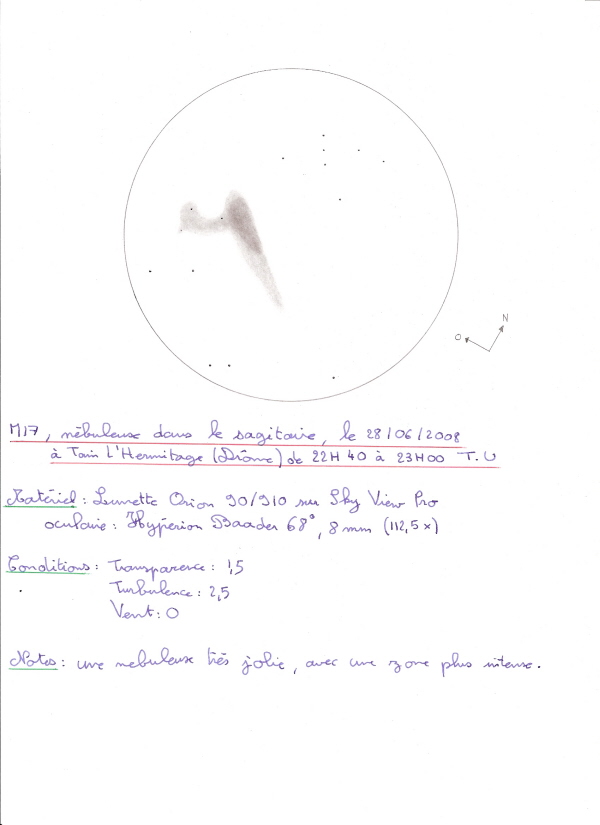 N
O
M17, nébuleuse dans le sagitaire, le 28/06/2008
à Tain L'Hermitage (Drôme) de 22H40 à 23H00 T.U
Matériel : Lunette Orion 90/910 sur Sky View Pro
oculaire : Hypérion Baader 68°, 8 mm (112,5x)
Conditions : Transparence : 1,5
Turbulence : 2,5
Vent : 0
Notes : une nebuleuse très jolie, avec une zone plus intense.